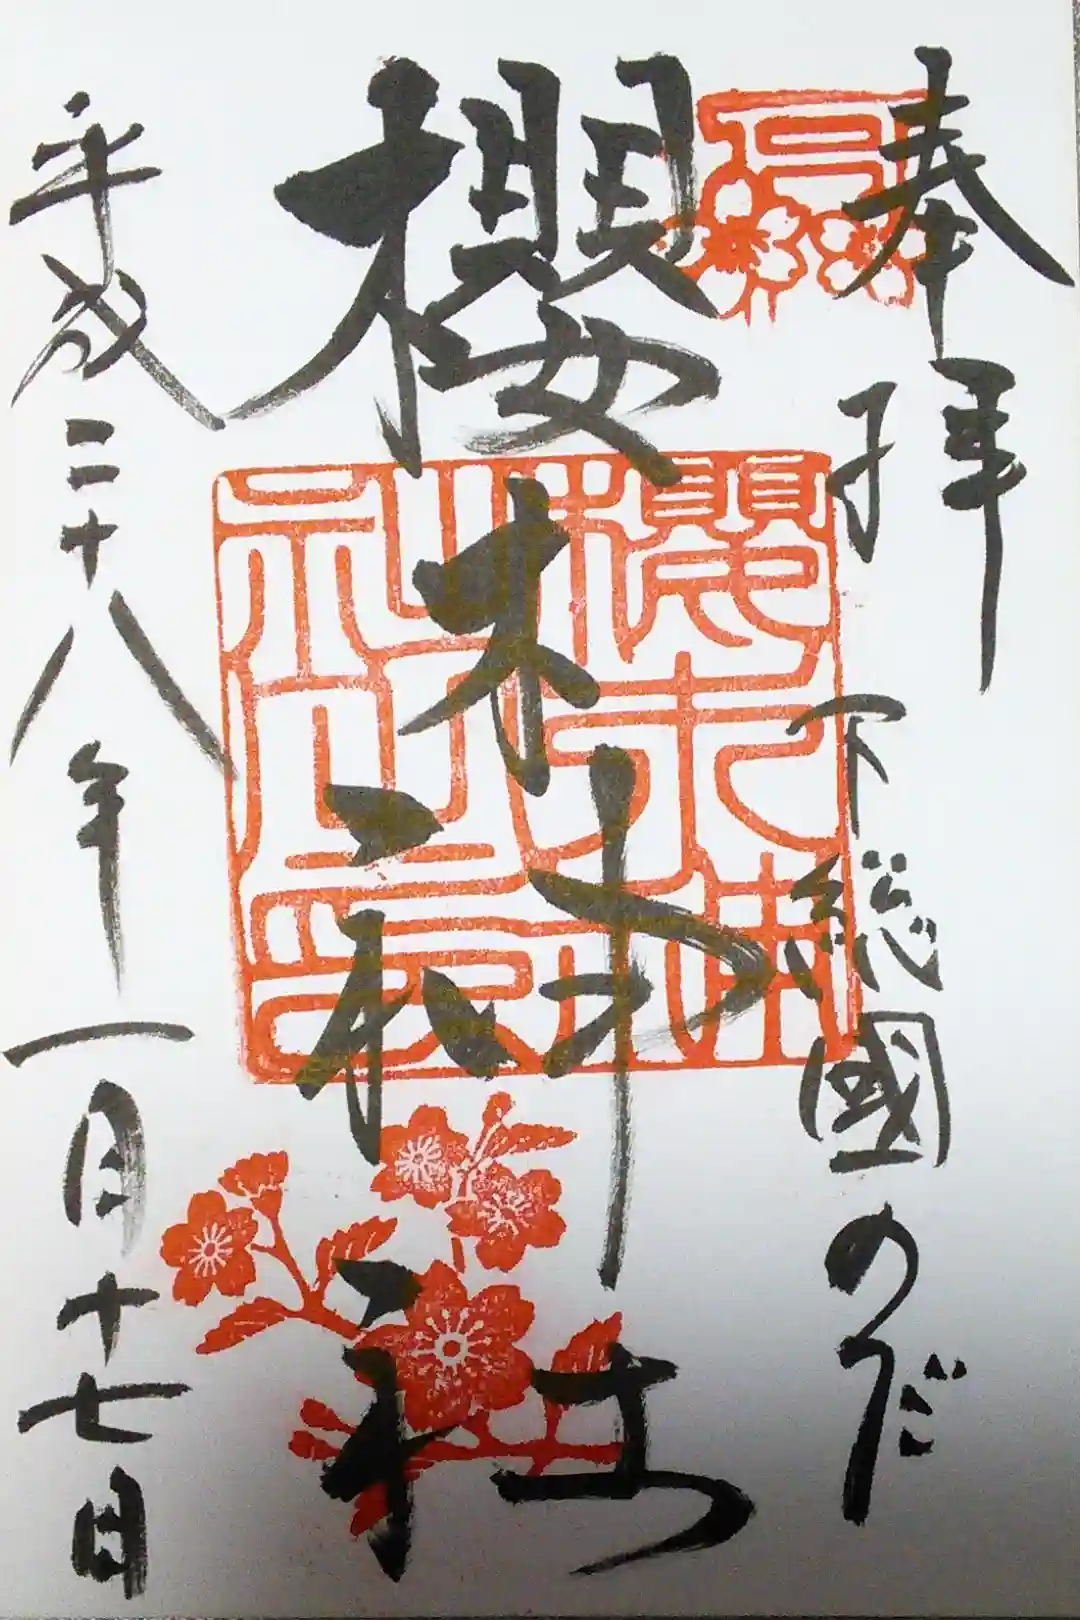 奉拝
于下総國のだ
櫻木神社
櫻木神
社之印
平成二十八年一月十七日